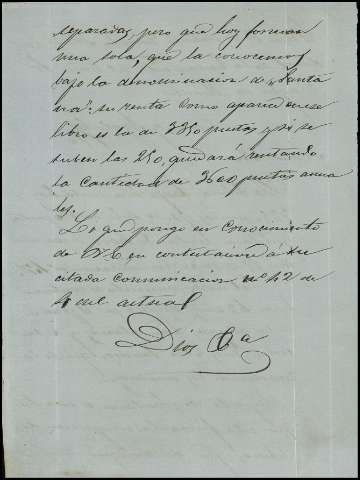 separadas, pero que hoy forman
una sola, que la conocemos
bajo la denominacion de "Santa
su renta como aparece en ese
libro es la de 2350 puntas y si se
suben las 250, quedará rentando
la cantidad de 2600 puntas anua
les.
Lo que pongo en conocimiento
de V.E. en contestacion á su
citada comunicacion nº 42 de
4 del actual
Dios &a